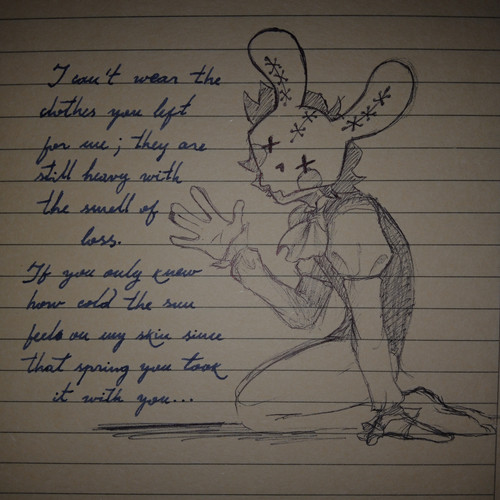 I can't wear the
clothes you left
for me; they are
still heavy with
the smell of
loss.
If you only knew
how cold the sun
feels on my skin since
that spring you took
it with you...